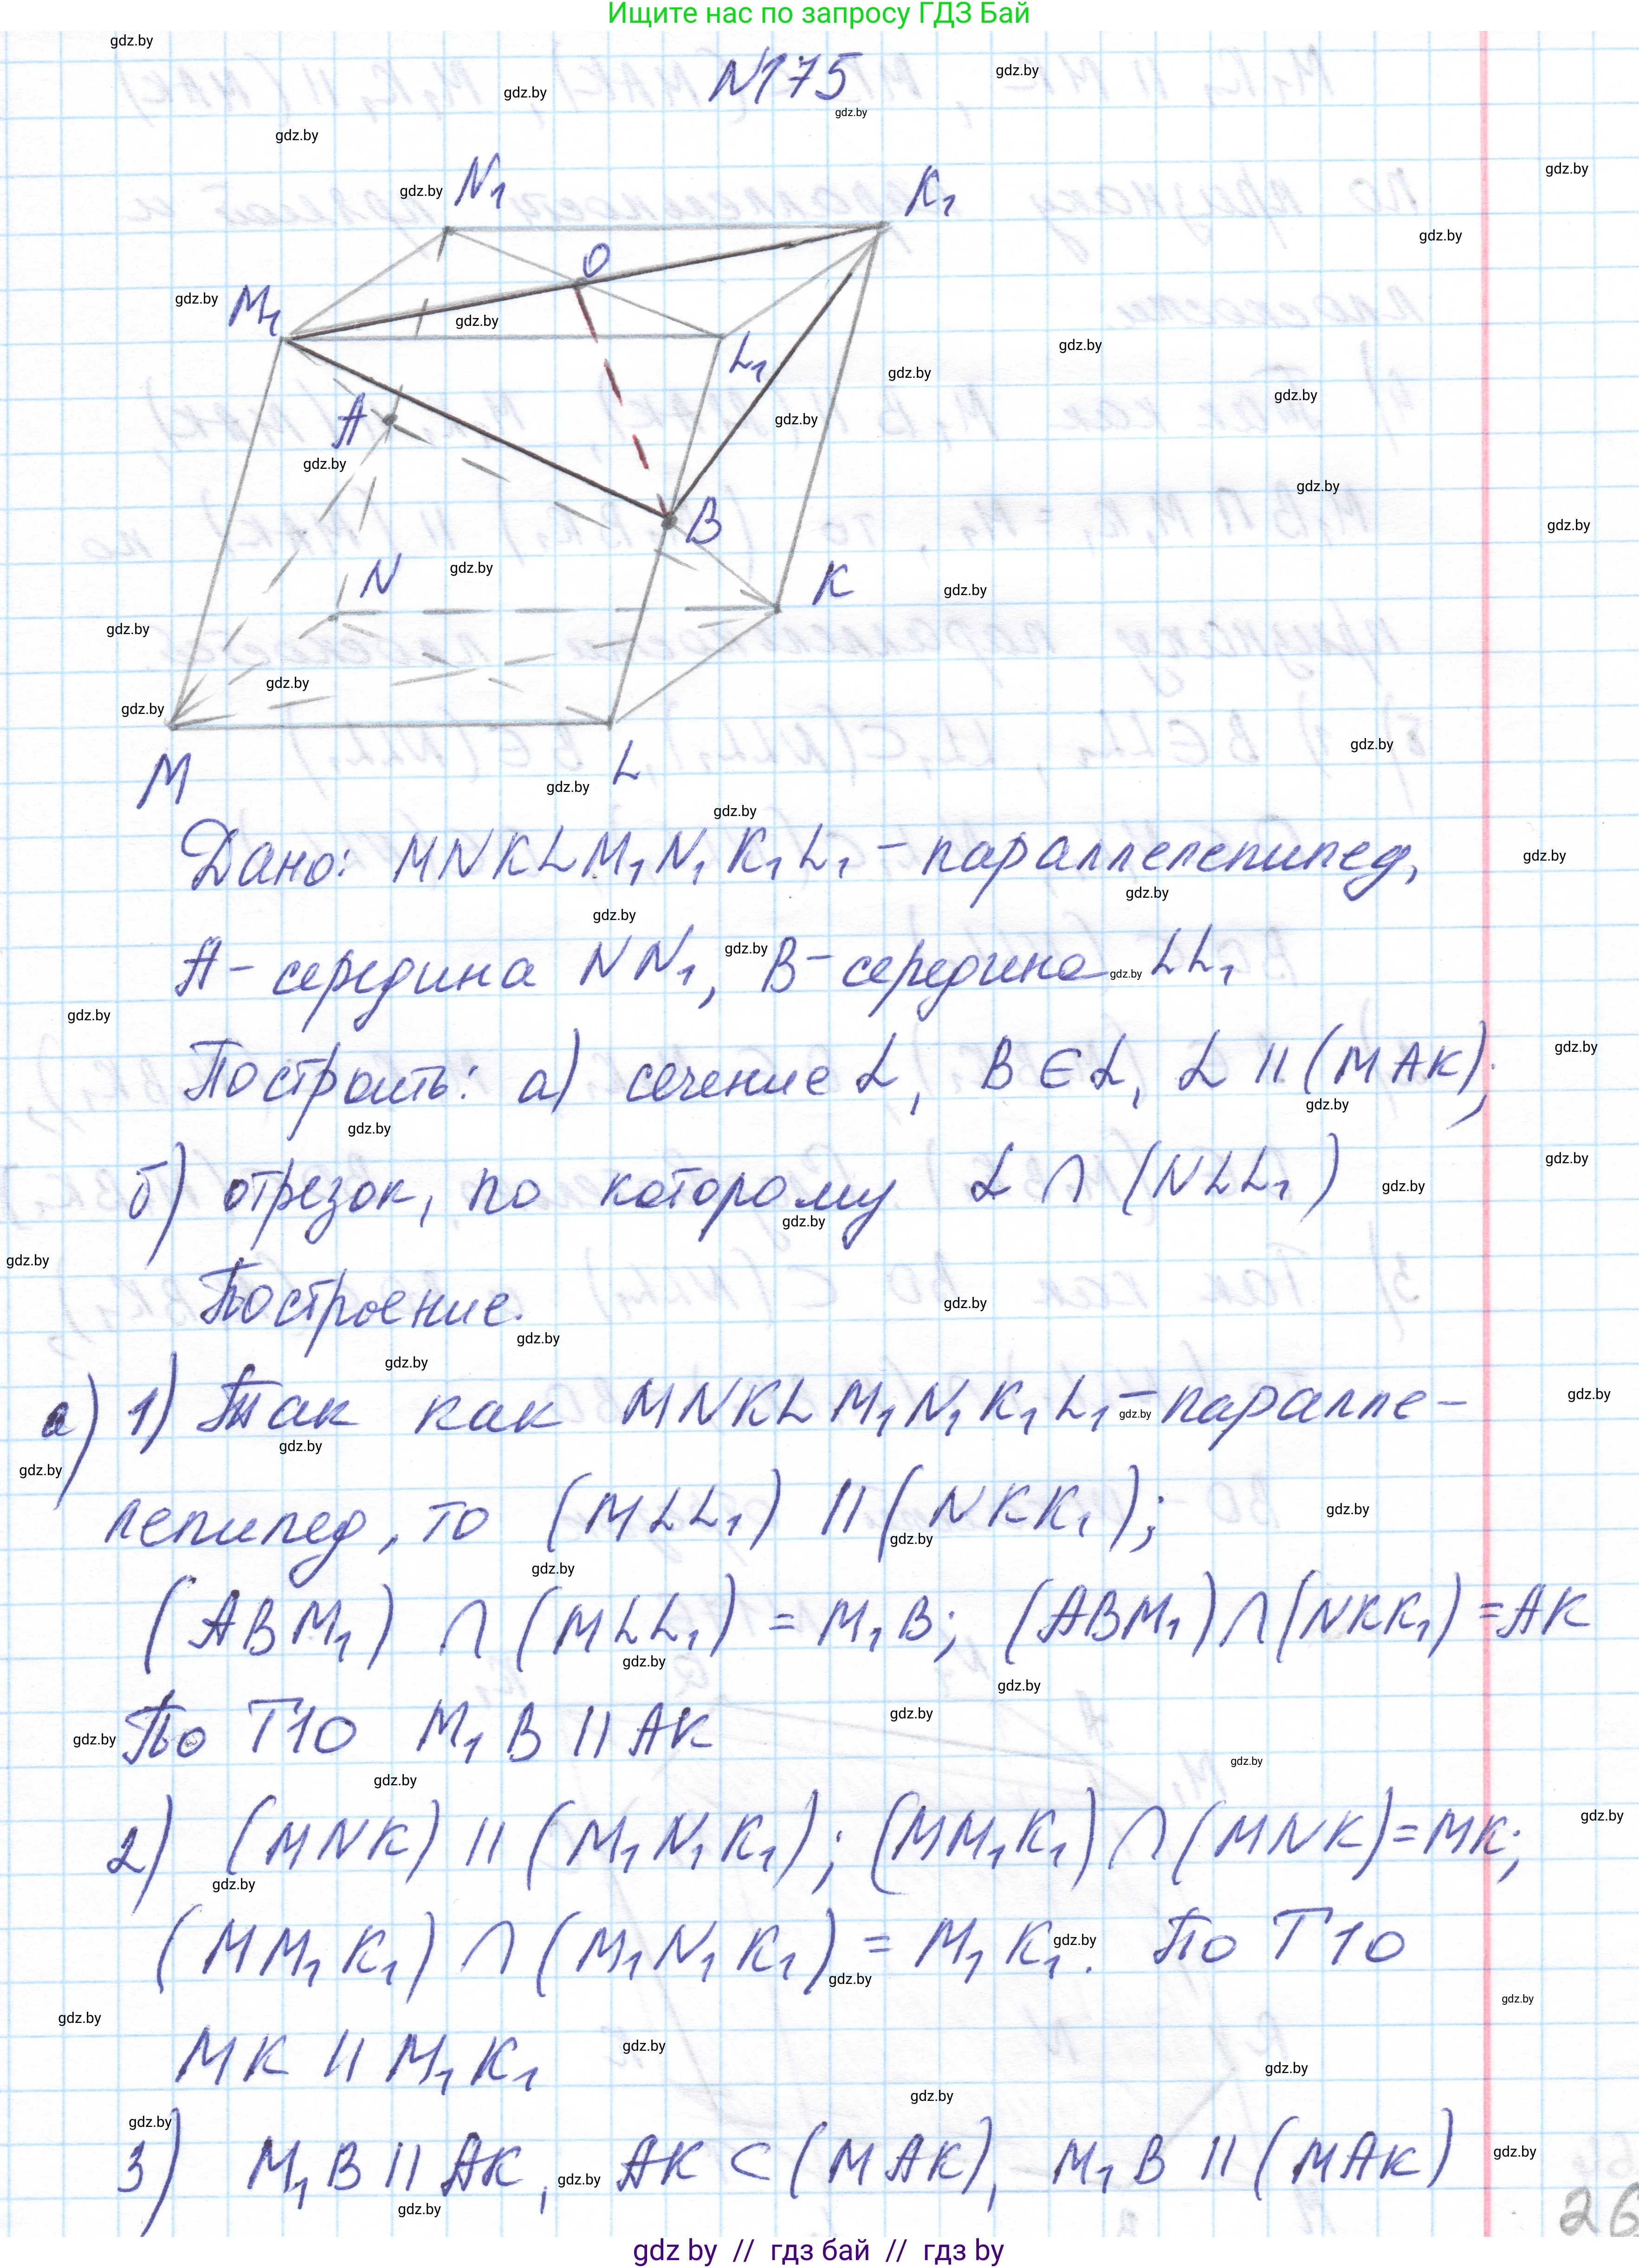 Ищите нас по запросу ГДЗ Бай
N175
N₁
K₁
O
M₁
L₁
A
B
N
K
M
L
Дано: MNKLM₁N₁K₁L₁ – параллелепипед,
A – середина NN₁, B – середина LL₁
Построить: а) сечение L, B ∈ L, L || (MAK);
б) отрезок, по которому L ∩ (NLL₁)
Построение.
а) 1) Так как MNKLM₁N₁K₁L₁ – паралле-
лепипед, то (MLL₁) || (NKK₁);
(ABM₁) ∩ (MLL₁) = M₁B; (ABM₁) ∩ (NKK₁) = AK
По Т10 M₁B || AK
2) (MNK) || (M₁N₁K₁); (MM₁K₁) ∩ (MNK) = MK;
(MM₁K₁) ∩ (M₁N₁K₁) = M₁K₁. По Т10
MK || M₁K₁
3) M₁B || AK, AK ⊂ (MAK), M₁B || (MAK)
26
gdz by // гдз бай // гдз by